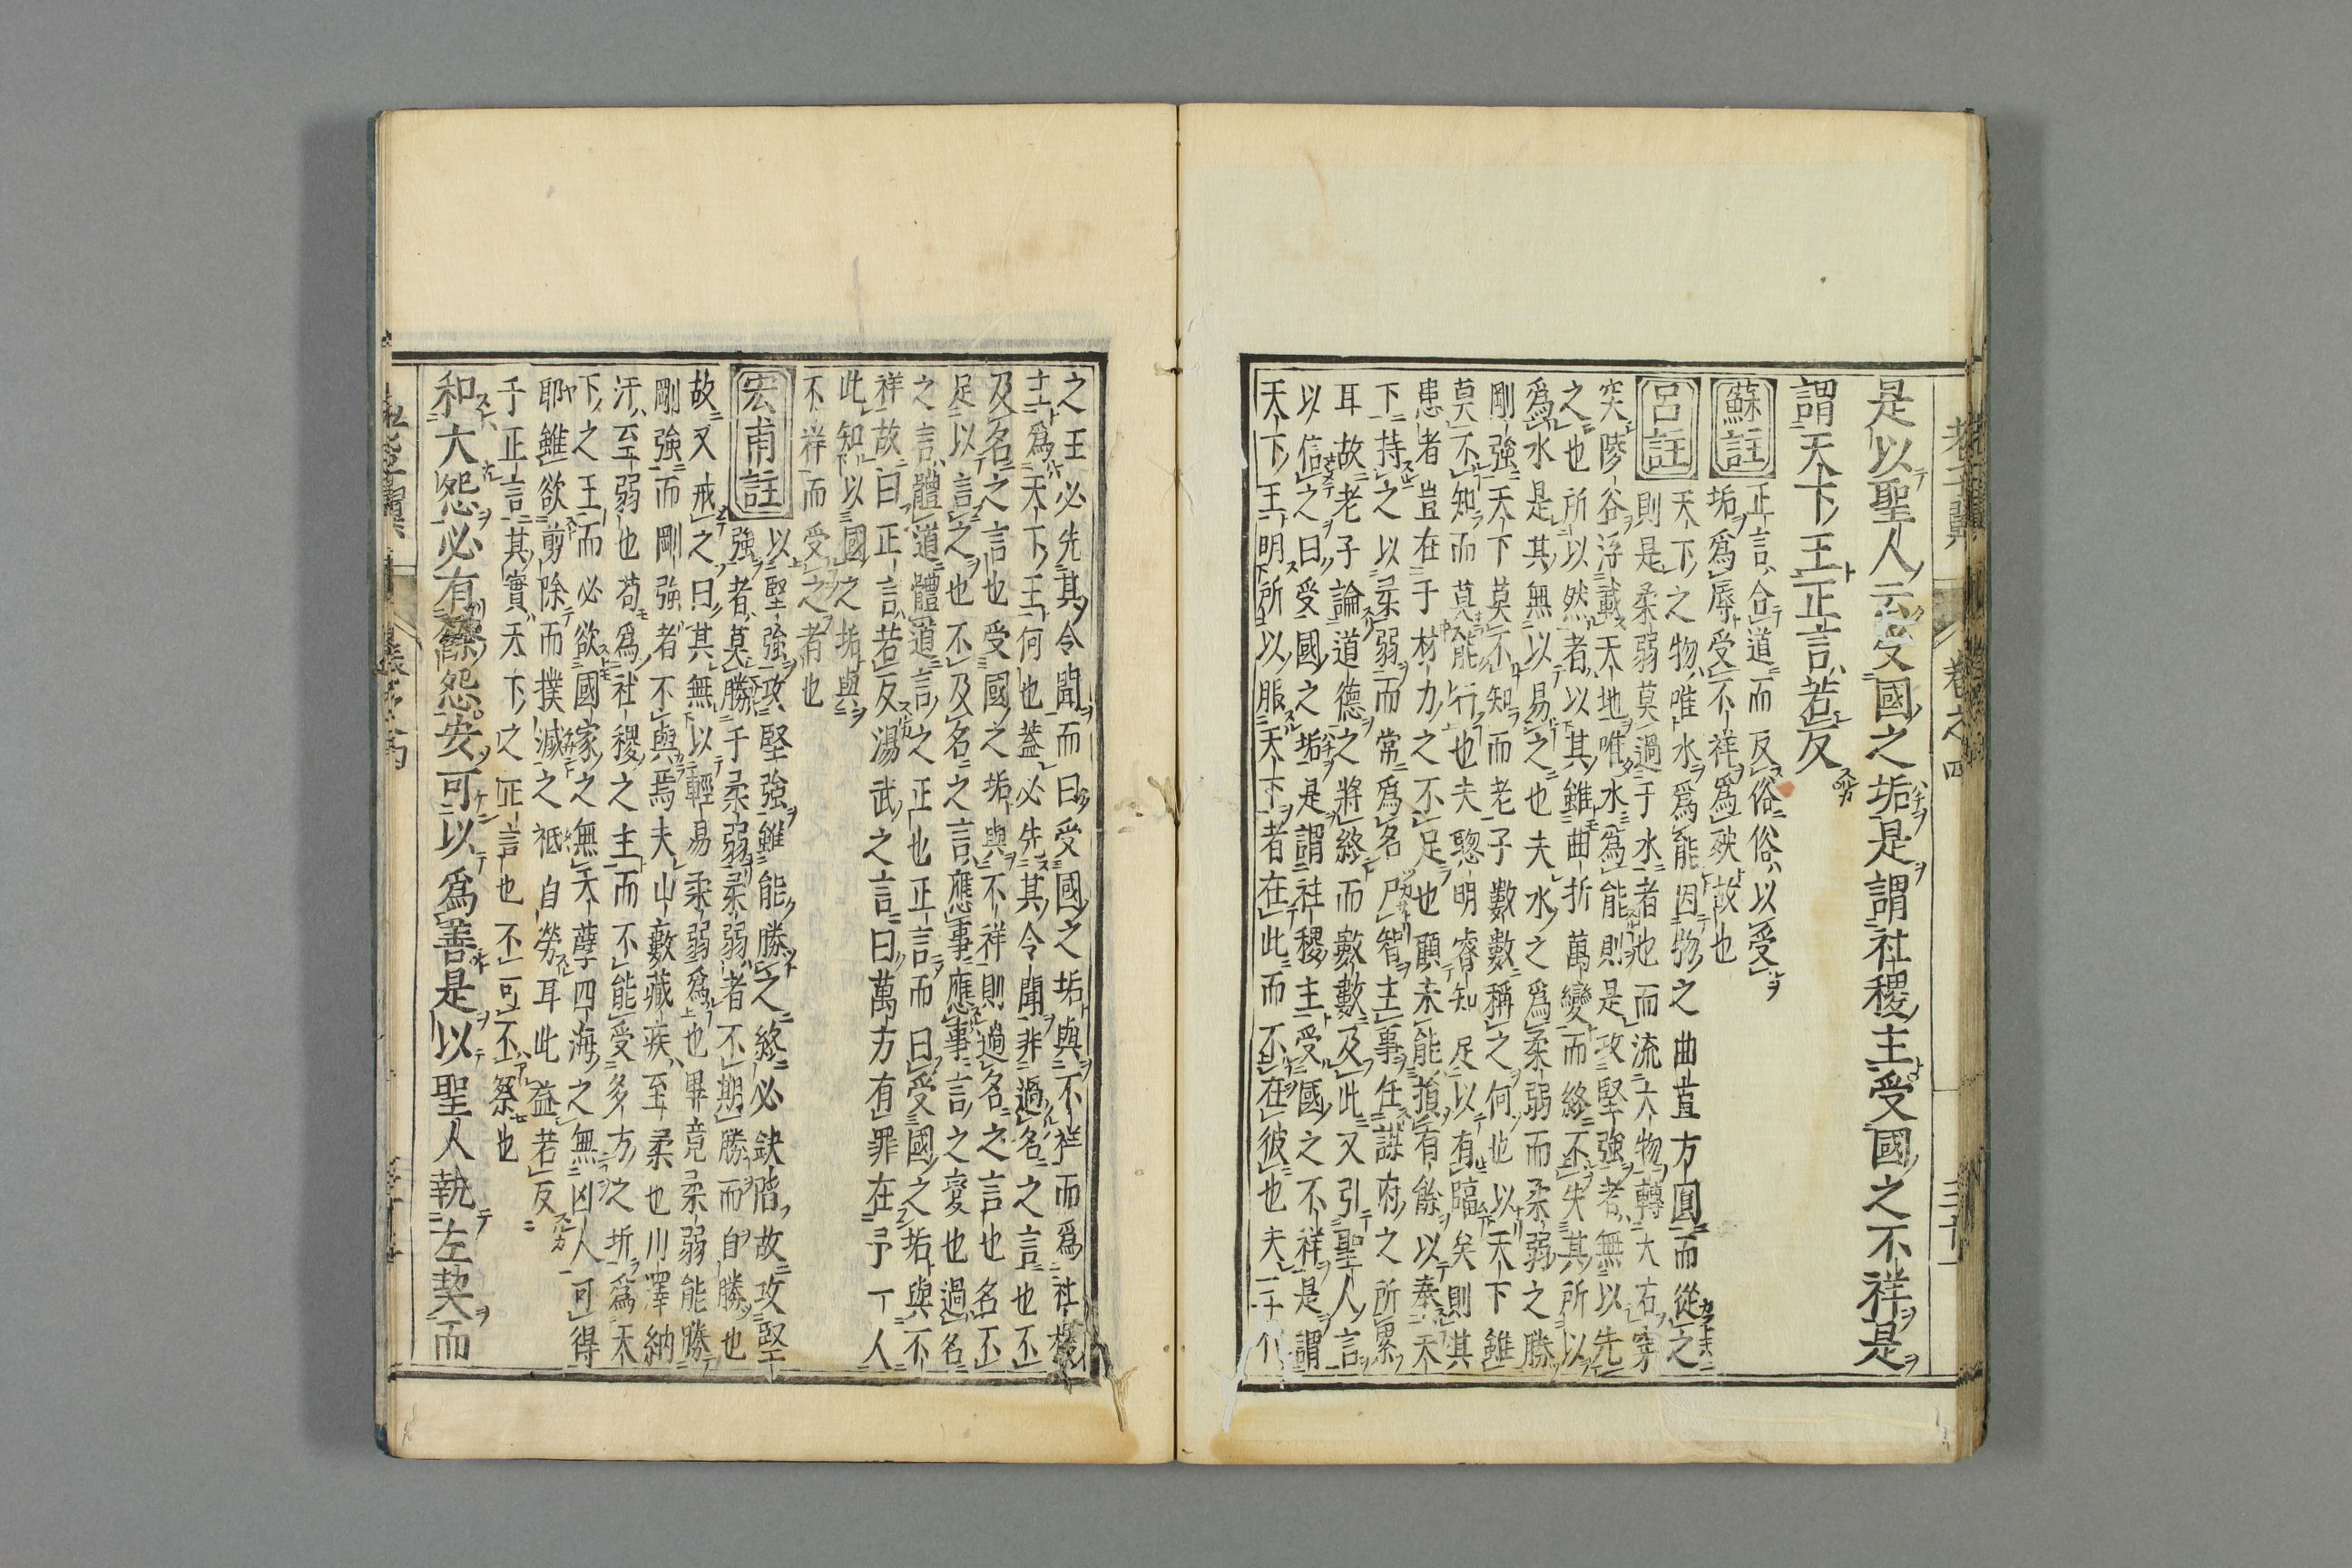 老子翼 卷之四
是以聖人云受國之垢是謂社稷主受國之不祥是
謂天下王正言若反
蘇註
正言合道而反俗俗以受
垢爲辱受不祥爲殃故也
呂註
天下之物唯水爲能因物之曲直方圓而從之
則是柔弱莫過于水者也而流大物轉大石穿
突陵谷浮載天地唯水爲能則是攻堅強者無以先
之也所以然者以其雖曲折萬變而終不失其所以
爲水是其無以易之也夫水之爲柔弱而柔弱之勝
剛強天下莫不知而老子數數稱之何也以天下雖
莫不知而莫能行也夫聰明睿知足以有臨矣則其
患者豈在于材力之不足也顧未能損有餘以奉天
下持之以柔弱而常爲名尸智主事任謀府之所累
耳故老子論道德之將終而數數及此又引聖人言
以信之曰受國之垢是謂社稷主受國之不祥是謂
天下王明所以服天下者在此而不在彼也夫
之王必先其令聞而曰受國之垢與不祥而爲社稷
主爲天下王何也蓋必先其令聞非過名之言也不
及名之言也受國之垢與不祥則過名之言也名不
足以言之也不及名之言應事應事言之變也過名
之言體道體道言之正也正言而曰受國之垢與不
祥故曰正言若反湯武之言曰萬方有罪在予一人
此知以國之垢與
不祥而受之者也
宏甫註
以堅強攻堅強雖能勝之終必缺階故攻堅
強者莫勝于柔弱柔弱者不期勝而自勝也
故又戒之曰其無以輕易柔弱爲也畢竟柔弱能勝
剛強而剛強者不與焉夫山藪藏疾至柔也川澤納
汙至弱也苟爲社稷之主而不能受多方之垢爲天
下之王而必欲國家之無大孽四海之無凶人可得
耶雖欲剪除而撲滅之祗自勞耳此益若反
于正言其實天下之正言也不可不察也
和大怨必有餘怨安可以爲善是以聖人執左契而